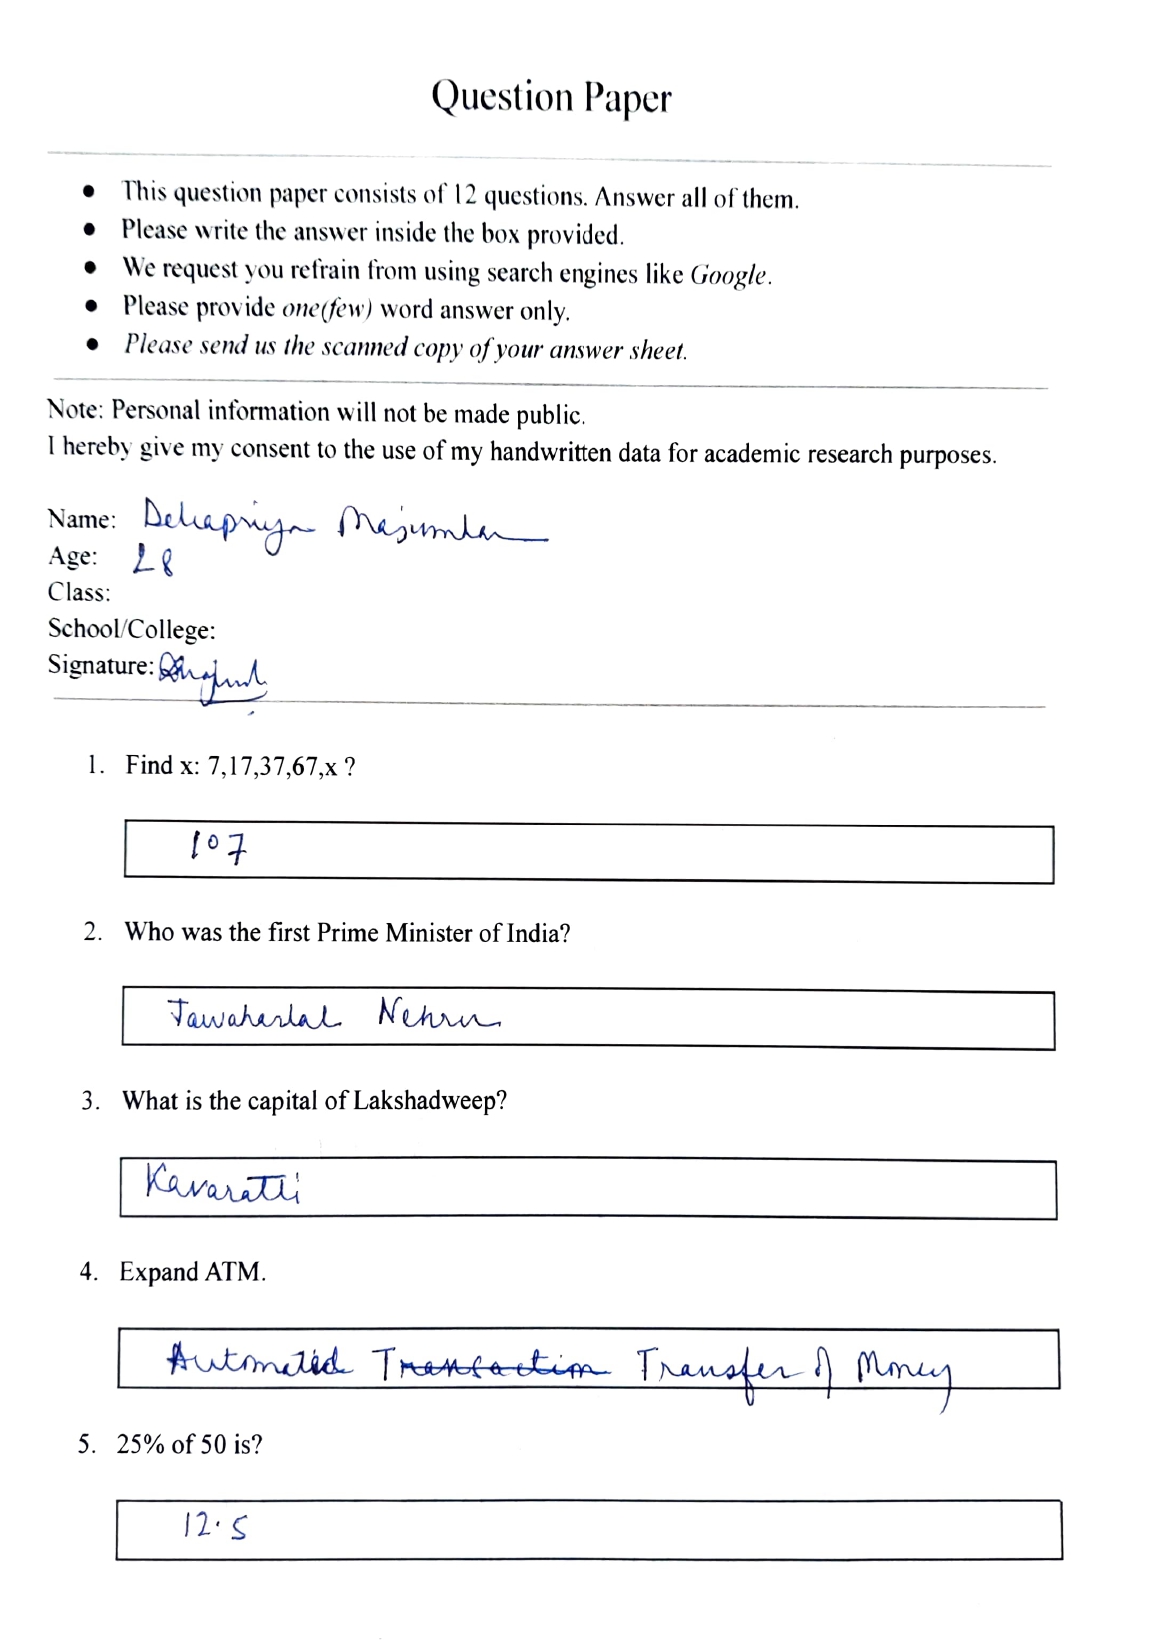 Question Paper
● This question paper consists of 12 questions. Answer all of them.
● Please write the answer inside the box provided.
● We request you refrain from using search engines like Google.
● Please provide one(few) word answer only.
● Please send us the scanned copy of your answer sheet.
Note: Personal information will not be made public.
I hereby give my consent to the use of my handwritten data for academic research purposes.
Name: Debapriya Majumdar
Age: 28
Class:
School/College:
Signature:
1. Find x: 7,17,37,67,x ?
107
2. Who was the first Prime Minister of India?
Jawaharlal Nehru
3. What is the capital of Lakshadweep?
Kavaratti
4. Expand ATM.
Automated Transaction Transfer of Money
5. 25% of 50 is?
12.5